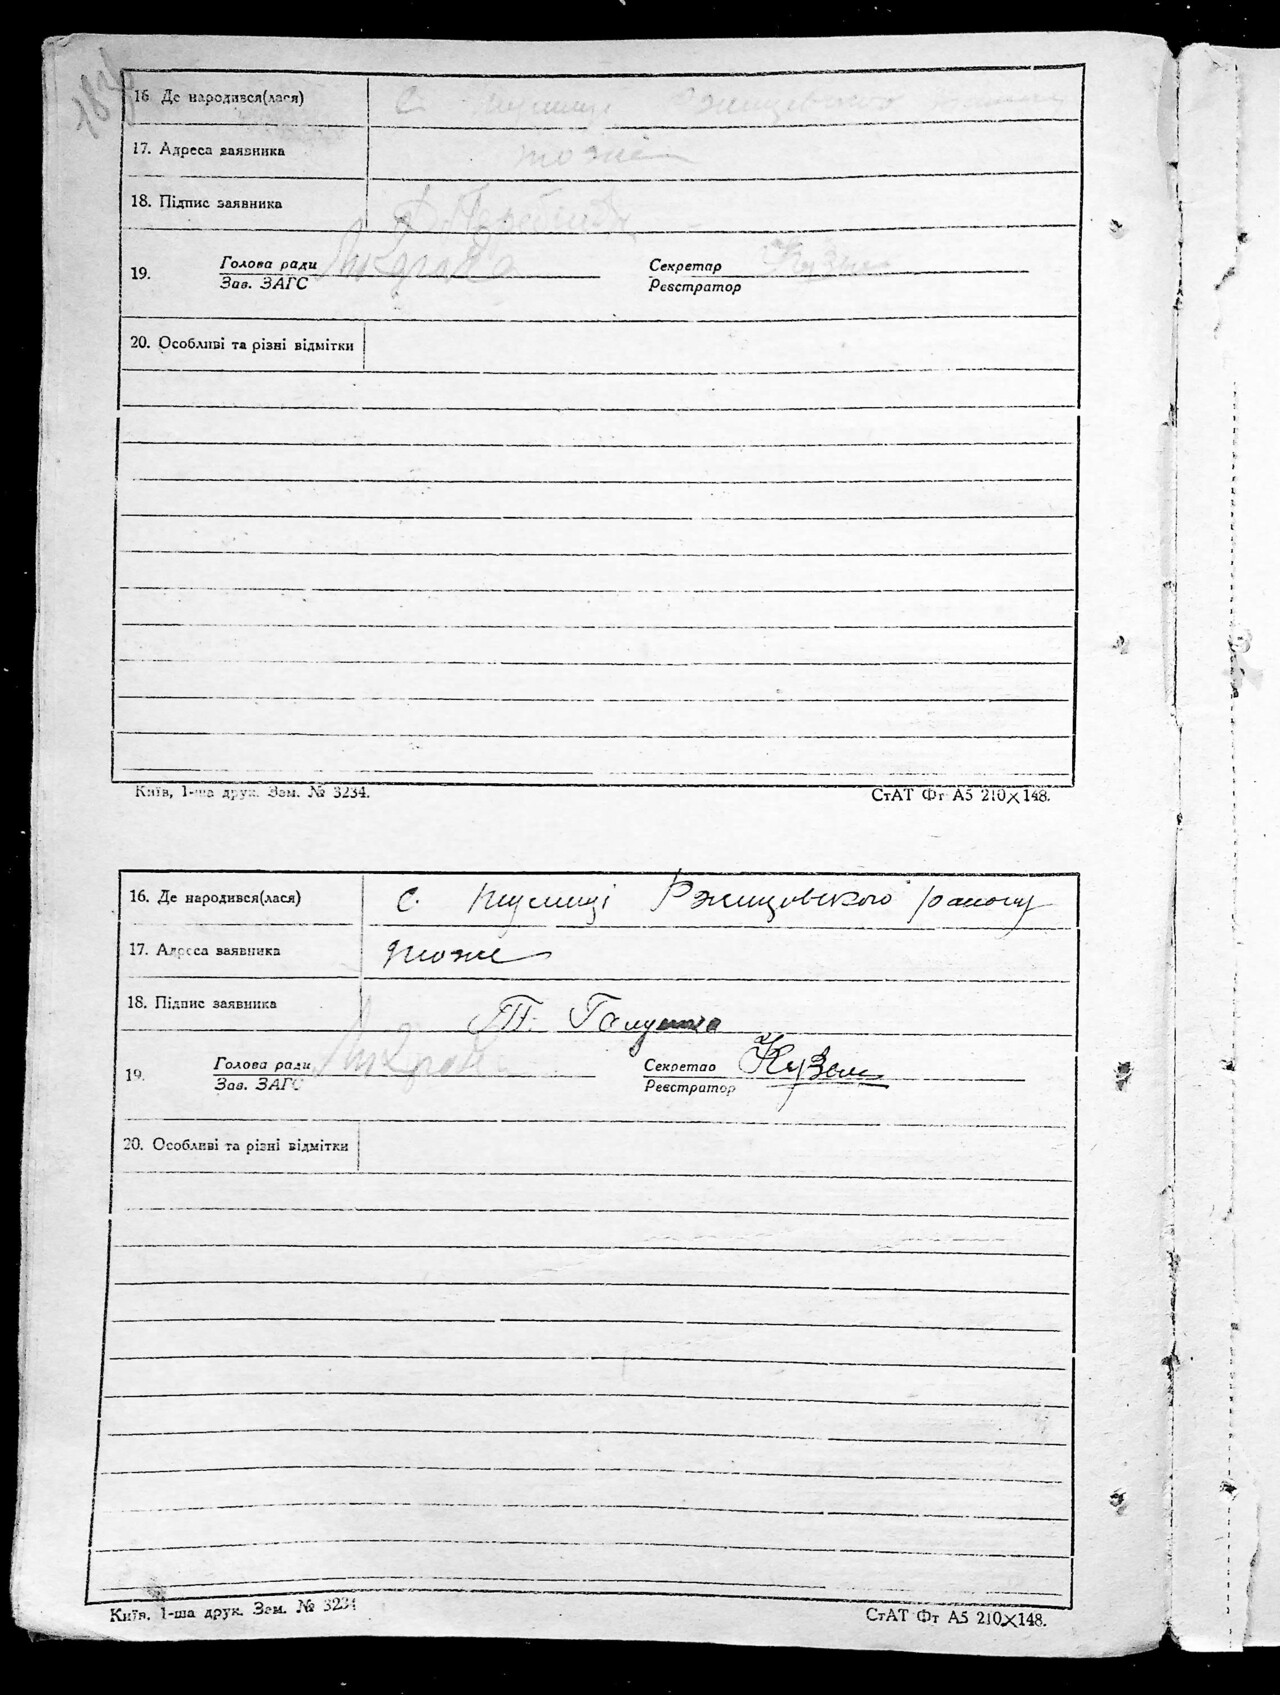 16. Де народився(лася) с. Ржищевского району
17. Адреса заявника тоже
18. Підпис заявника
19. Голова ради Секретар Кузь
Зав. ЗАГС Реєстратор
20. Особливі та різні відмітки
Київ, 1-ша друк. Зам. № 3234. СтАТ Фт А5 210×148.
16. Де народився(лася) с. Ржищовского району
17. Адреса заявника тоже
18. Підпис заявника Т. Галушка
19. Голова ради Секретар
Зав. ЗАГС Реєстратор
20. Особливі та різні відмітки
Київ, 1-ша друк. Зам. № 3234 СтАТ Фт А5 210×148.